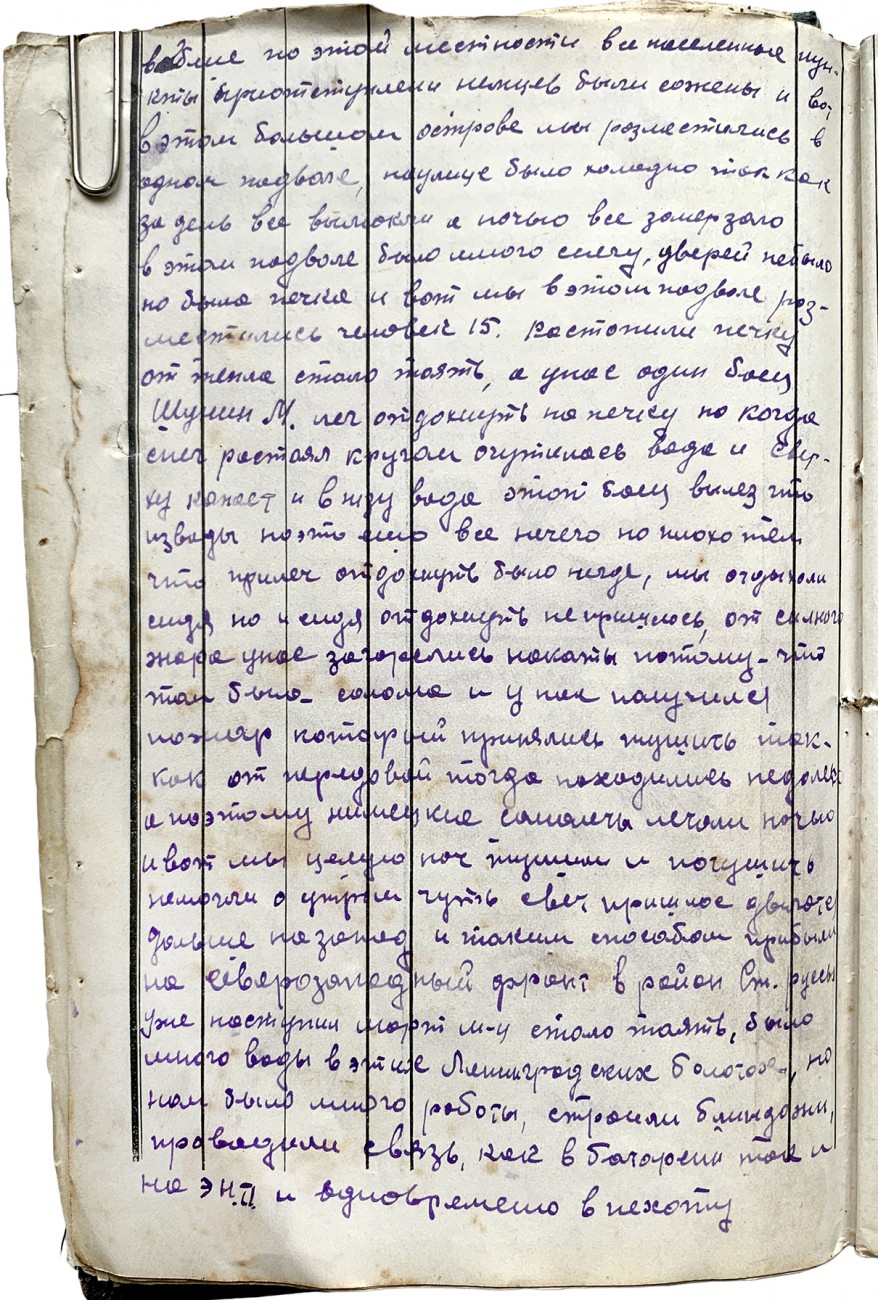 вобще по этой местности все населенные пун-
кты приотступлени немцев были сожены и вот
в этом большом острове мы розместились в
одном подвале, наулице было холодно так как
за день все вымокли а ночью все замерзало
в этом подвале было много снегу, дверей небыло
но была печка и вот мы в этом подвале роз-
местились человек 15. Растопили печку
от тепла стало таять, а унас один боец
Шунин М. лег отдохнуть на печку но когда
снег растаял кругом очутилась вода и свер-
ху капает и внизу вода этот боец вылез что
изводы поэтому все нечего но плохо тем
что прилеч отдохнуть было негде, мы отдыхали
сидя но и сидя отдохнуть непришлось, от силного
жара унас загорелись накаты потому-что
там была солома и у нас получился
пожар который принялись тушить так-
как от передовой тогда находились недалеко
а поэтому нимецкие самалеты летали ночью
и вот мы целую ноч тушили и потушить
немогли а утром чуть свет пришлос двигатся
дальше на запад и таким способом прибыли
на северозападный фронт в район Ст. русы
уже наступил март м-ц стало таять, было
много воды в этих Ленинградских болотах, но
нам было много работы, строили блиндажи,
проводили связь, как в батареи так и
на ЭН.П. и одновремено в пехоту